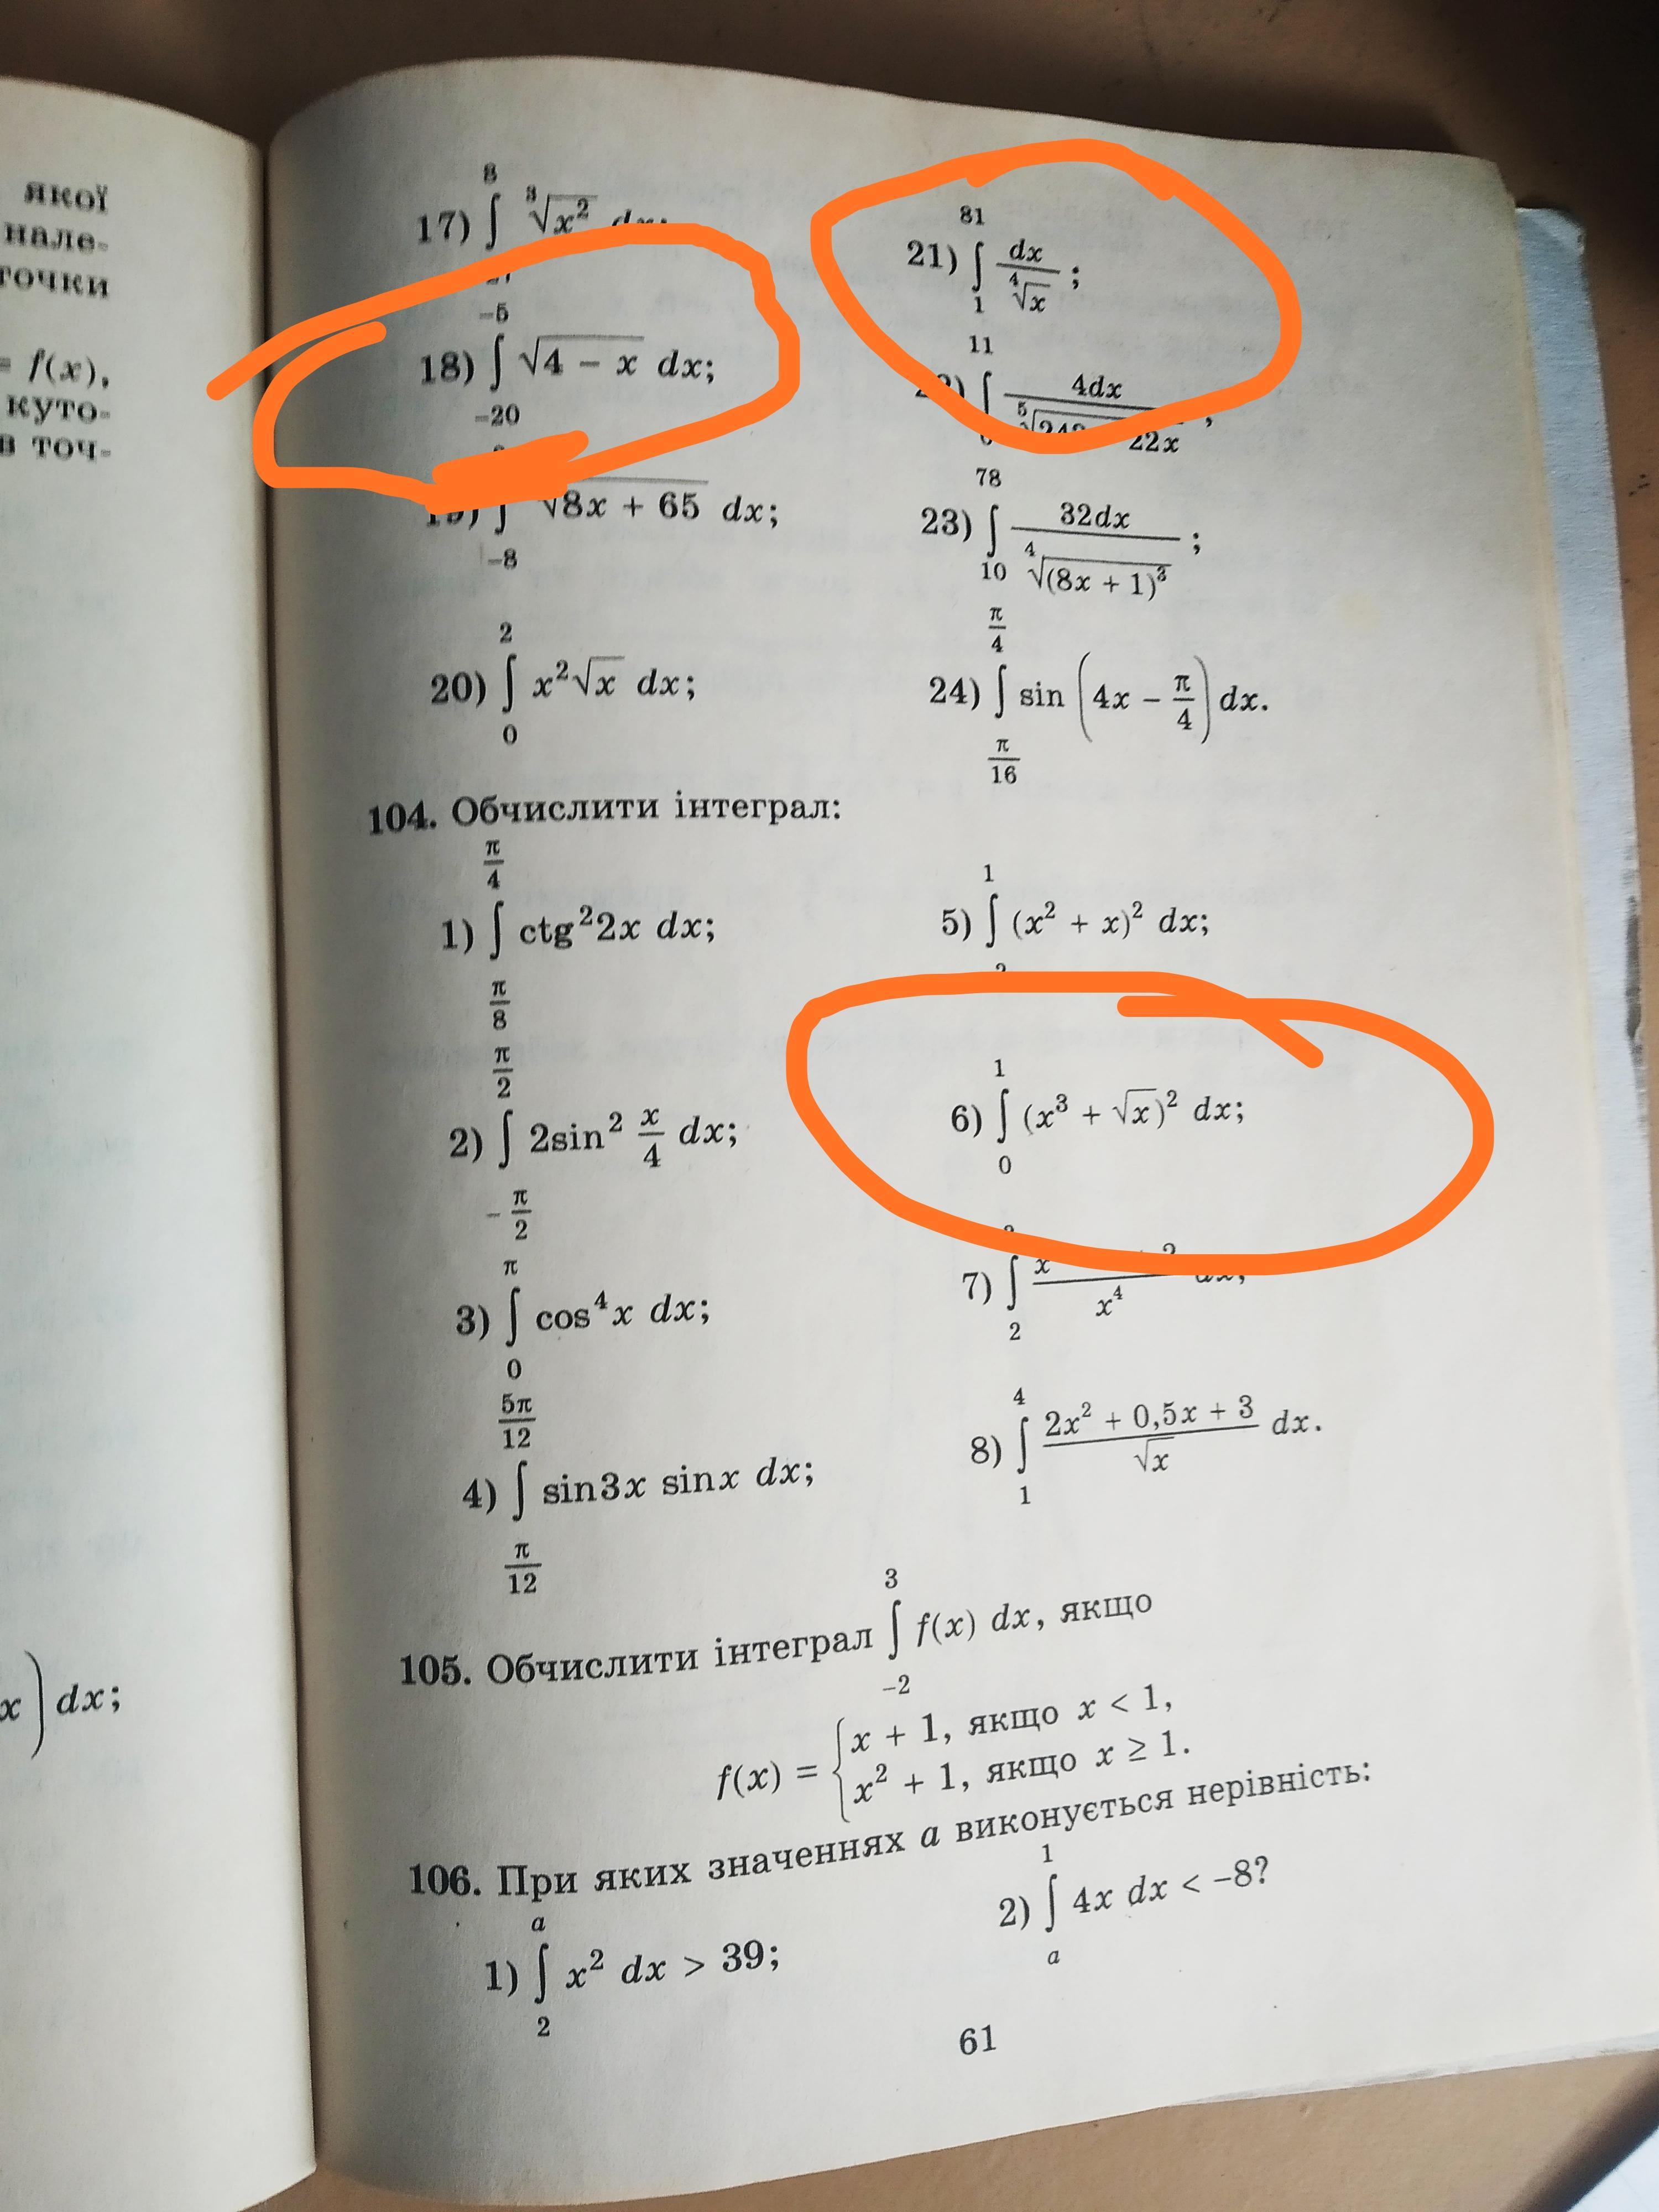 якої
нале-
точки
= f(x),
куто-
в точ-
x) dx;
17) ∫ ∛x² dx;
8
18) ∫_{-20}^{-5} √(4 − x) dx;
19) ∫ √(8x + 65) dx;
−8
20) ∫_{0}^{2} x²√x dx;
21) ∫_{1}^{81} dx/⁴√x ;
11
∫ 4dx
22x ;
23) ∫_{10}^{78} 32dx/⁴√((8x + 1)³) ;
24) ∫_{π/16}^{π/4} sin(4x − π/4) dx.
104. Обчислити інтеграл:
1) ∫_{π/8}^{π/4} ctg²2x dx;
2) ∫_{−π/2}^{π/2} 2sin² x/4 dx;
3) ∫_{0}^{π} cos⁴x dx;
4) ∫_{π/12}^{5π/12} sin3x sinx dx;
5) ∫^{1} (x² + x)² dx;
6) ∫_{0}^{1} (x³ + √x)² dx;
7) ∫_{2} x⁴ dx;
8) ∫_{1}^{4} (2x² + 0,5x + 3)/√x dx.
105. Обчислити інтеграл ∫_{−2}^{3} f(x) dx, якщо
f(x) = { x + 1, якщо x < 1,
x² + 1, якщо x ≥ 1.
106. При яких значеннях a виконується нерівність:
1) ∫_{2}^{a} x² dx > 39;
2) ∫_{a}^{1} 4x dx < −8?
61